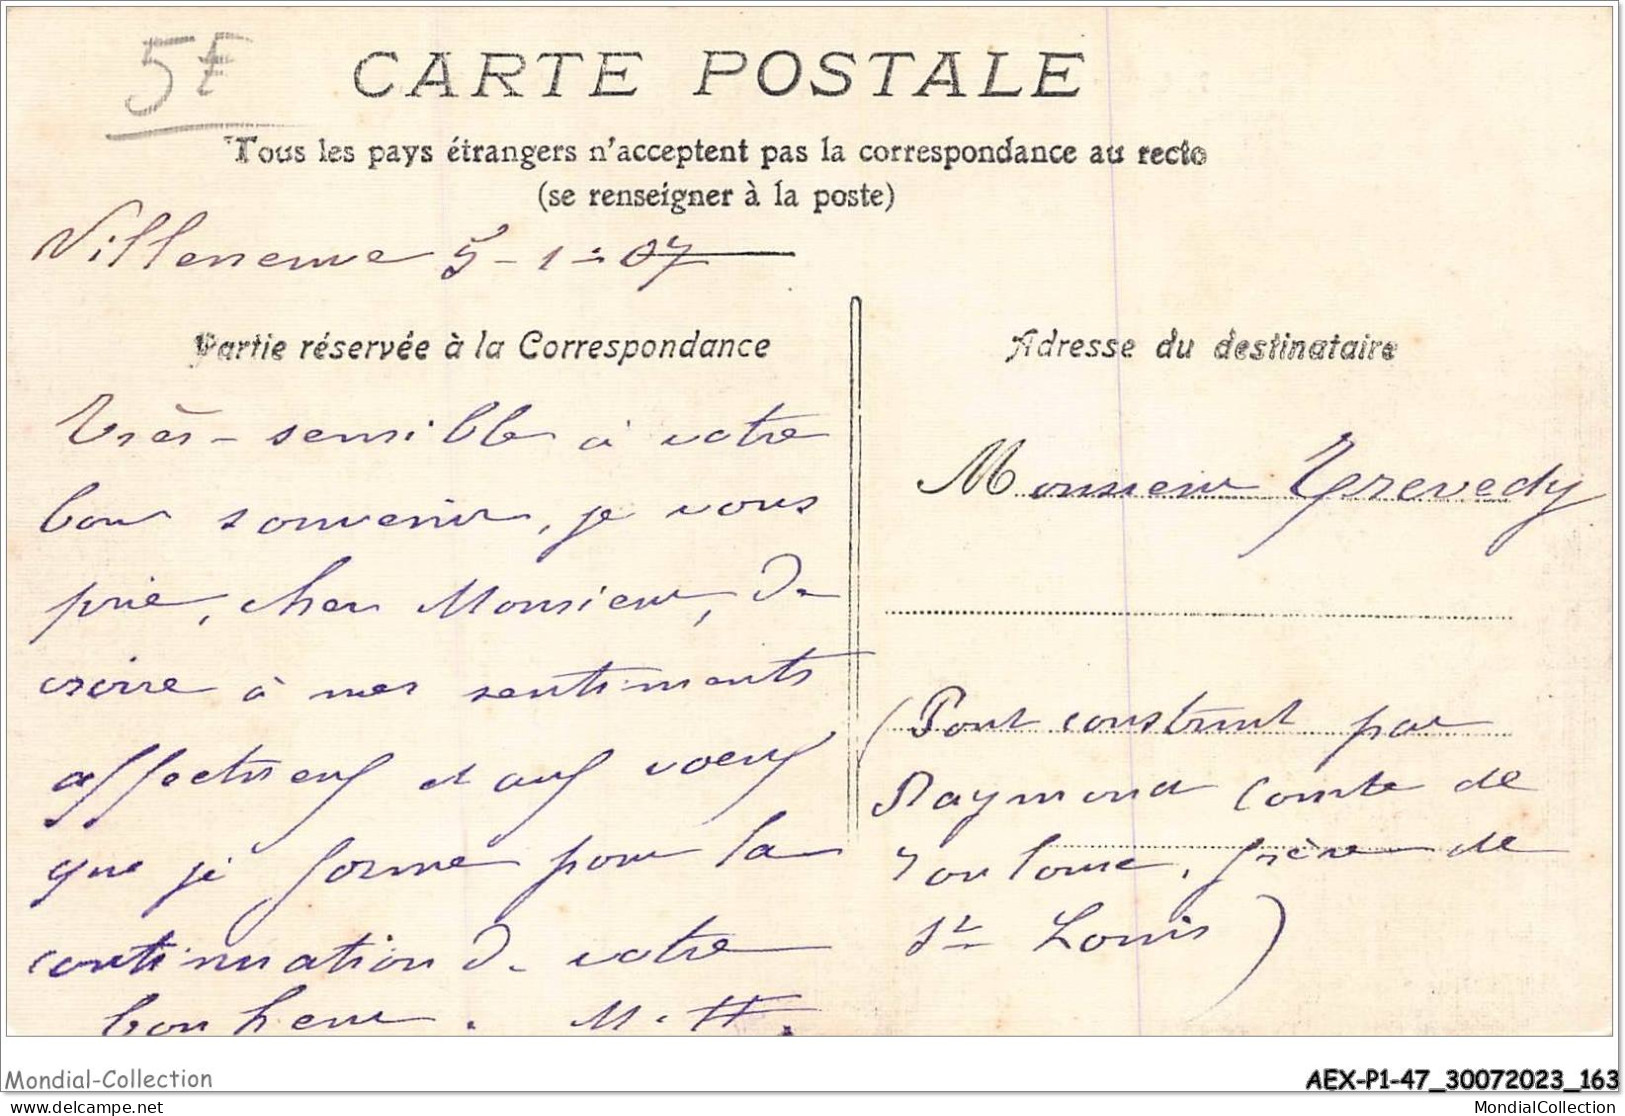 5F
CARTE POSTALE
Tous les pays étrangers n'acceptent pas la correspondance au recto
(se renseigner à la poste)
Villeneuve 5-1-07
Partie réservée à la Correspondance
Très-sensible à votre
bon souvenir, je vous
prie, cher Monsieur, de
croire à mes sentiments
affectueux et aux voeux
que je forme pour la
continuation de votre
bonheur. M.H.
Adresse du destinataire
Monsieur Trevedy
(Pont construit par
Raymond Comte de
Toulouse, frère de
St Louis)
Mondial-Collection
AEX-P1-47_30072023_163
delcampe.net
MondialCollection